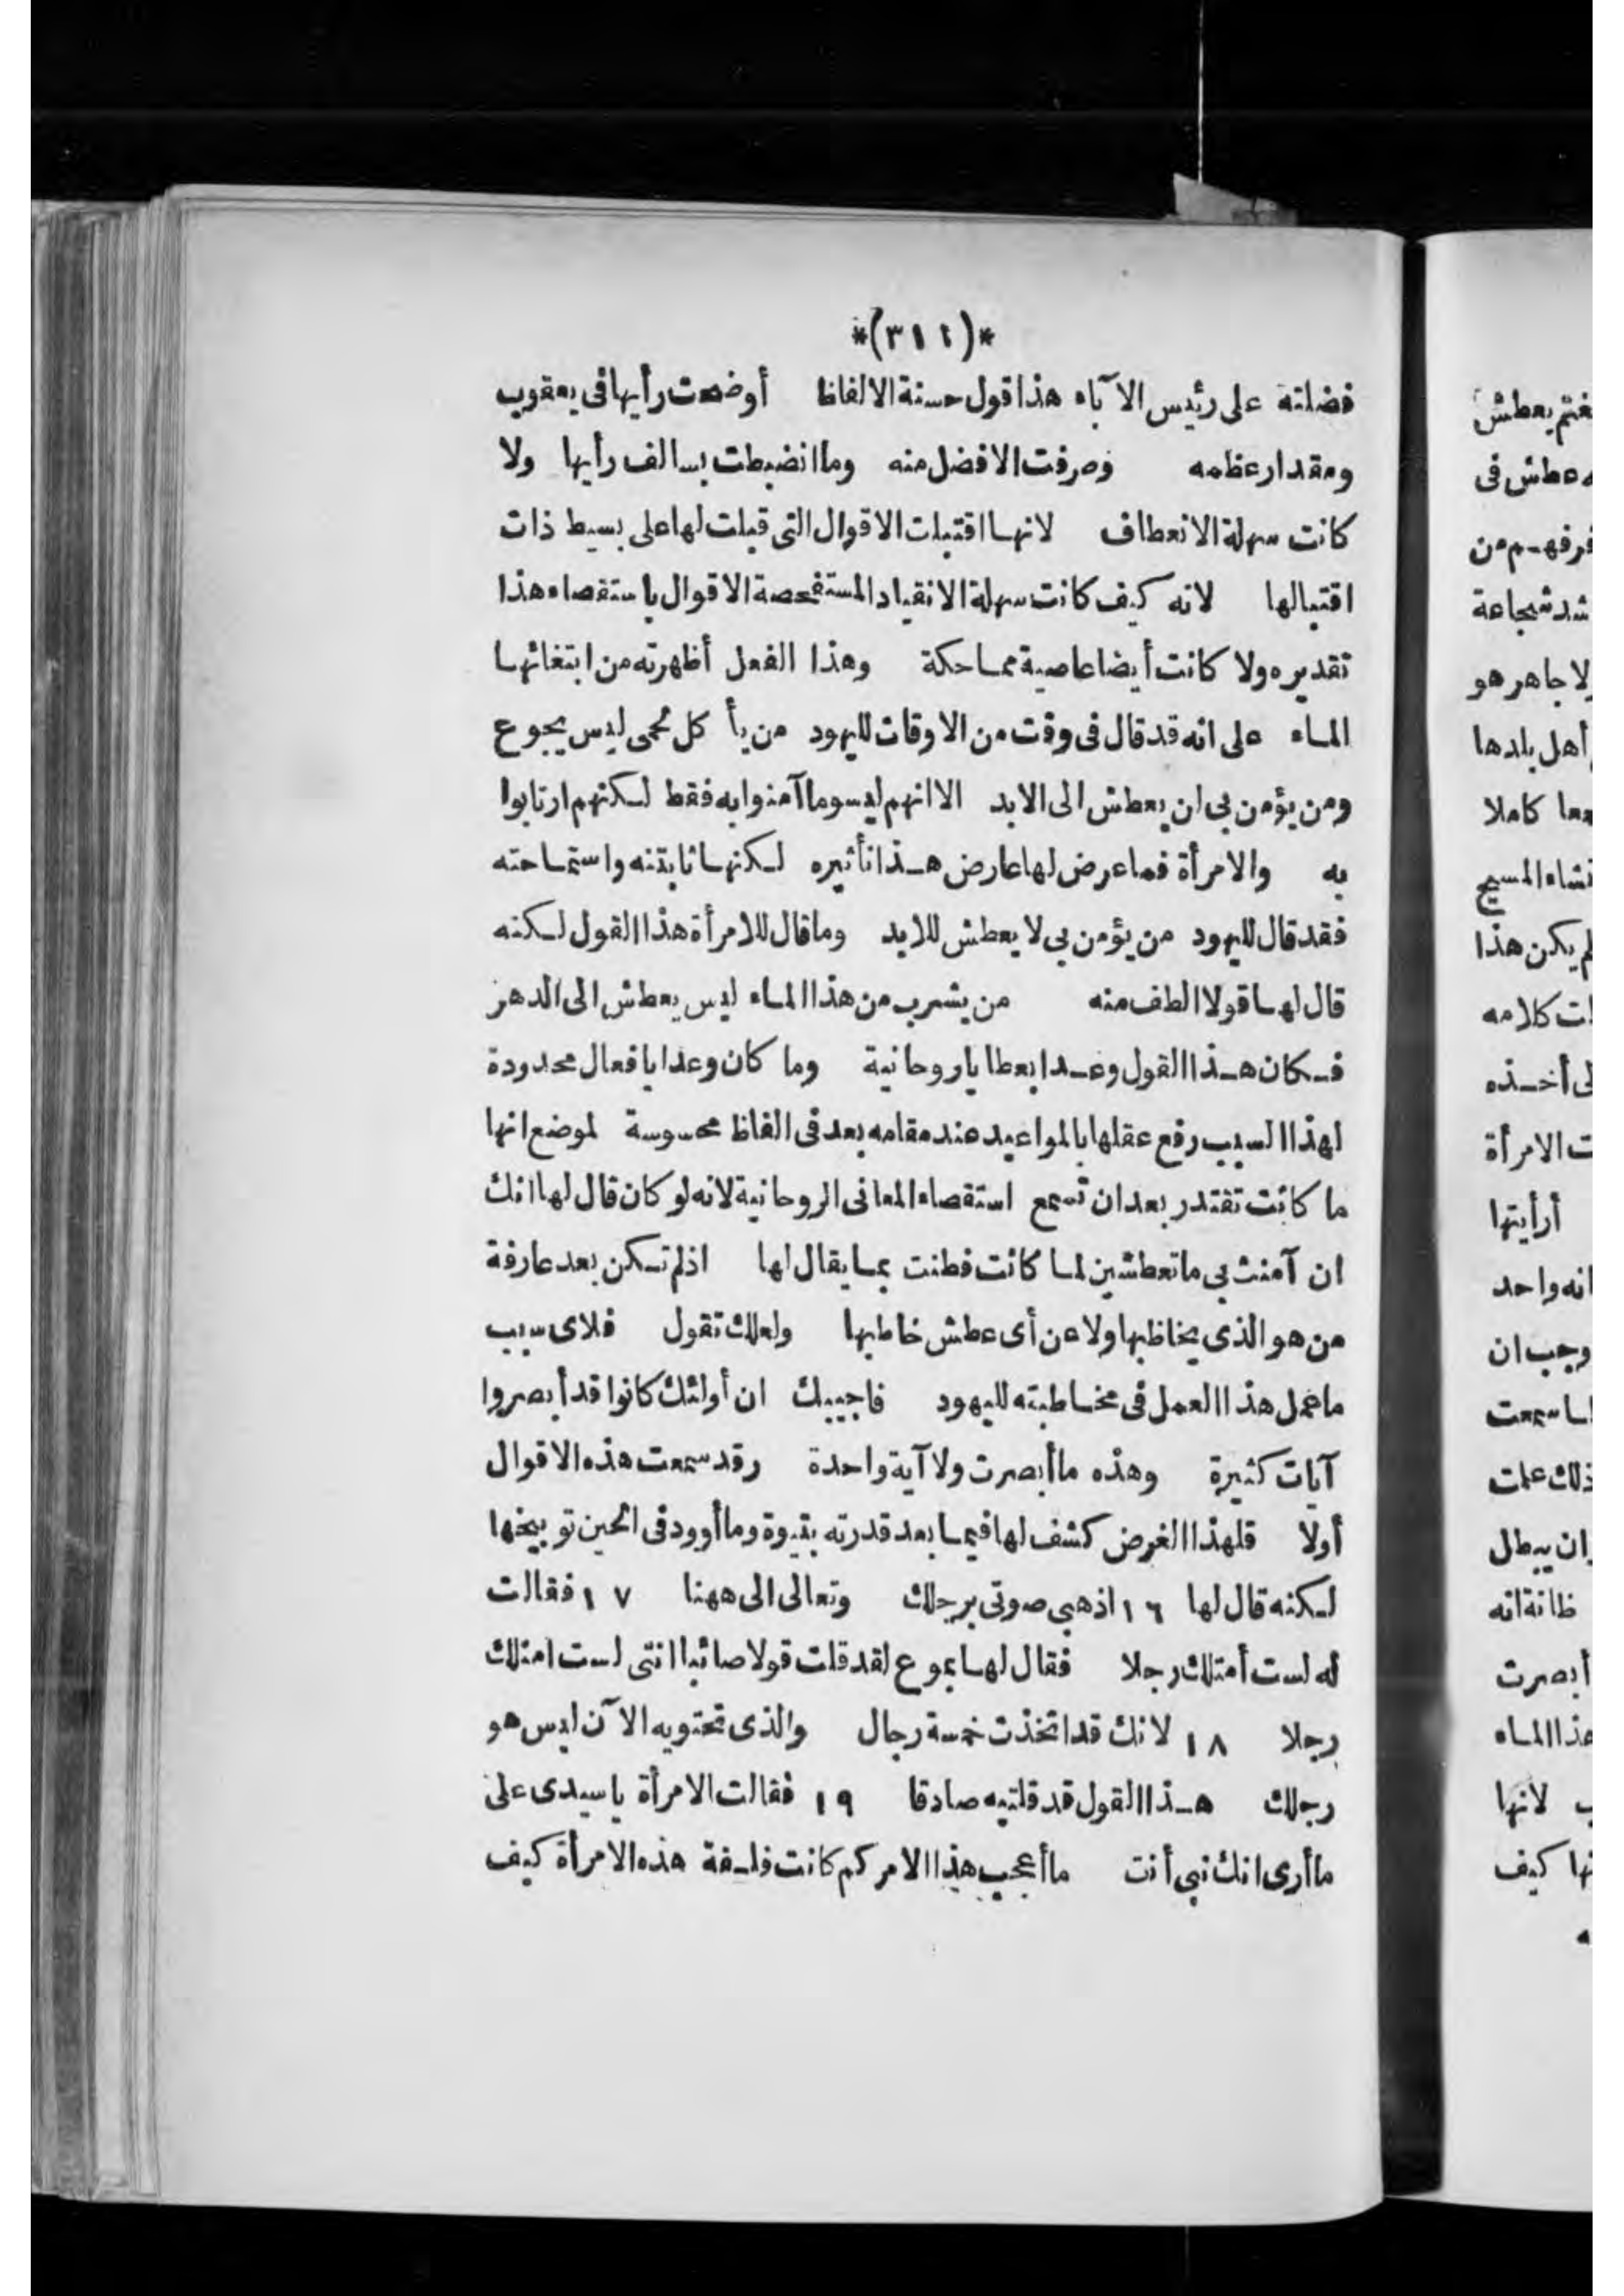 *(٣١١)*
فضلته على رئيس الآباء هذا قول حسنة الالفاظ أوضحت رأيها فى يعقوب
ومقدار عظمه وعرفت الافضل منه وما انضبطت بسالف رأيها ولا
كانت سهلة الانعطاف لانها اقتبلت الاقوال التى قيلت لها على بسيط ذات
اقتبالها لانه كيف كانت سهلة الانقياد المستفحصة الاقوال باستقصاء هذا
تقديره ولا كانت أيضا عاصية مماحكة وهذا الفعل أظهرته من ابتغائها
الماء على انه قد قال فى وقت من الاوقات لليهود من يأكل لحمى ليس يجوع
ومن يؤمن بى ان يعطش الى الابد الا انهم ليسوما آمنوا به فقط لكنهم ارتابوا
به والامرأة فما عرض لها عارض هذا تأثيره لكنها ثابتنه واستماحته
فقد قال لليهود من يؤمن بى لا يعطش للابد وما قال للامرأة هذا القول لكنه
قال لها قولا الطف منه من يشرب من هذا الماء ليس يعطش الى الدهر
فكان هذا القول وعدا بعطايا روحانية وما كان وعدا بافعال محدودة
لهذا السبب رفع عقلها بالمواعيد عند مقامه بعد فى الفاظ محسوسة لموضع انها
ما كانت تقتدر بعد ان تسمع استقصاء المعانى الروحانية لانه لو كان قال لها انك
ان آمنت بى ما تعطشين لما كانت فطنت بما يقال لها اذ لم تكن بعد عارفة
من هو الذى يخاطبها ولا عن أى عطش خاطبها ولعلك تقول فلاى سبب
ما عمل هذا العمل فى مخاطبته لليهود فاجيبك ان أولئك كانوا قد أبصروا
آيات كثيرة وهذه ما أبصرت ولا آية واحدة وقد سمعت هذه الاقوال
أولا فلهذا الغرض كشف لها فيما بعد قدرته بنبوة وما أورد فى الحين توبيخها
لكنه قال لها ١٦ اذهبى صوتى برجلك وتعالى الى ههنا ١٧ فقالت
له لست أمتلك رجلا فقال لها يسوع لقد قلت قولا صائبا انتى لست امتلك
رجلا ١٨ لانك قد اتخذت خمسة رجال والذى تحتويه الآن ليس هو
رجلك هذا القول قد قلتيه صادقا ١٩ فقالت الامرأة يا سيدى على
ما أرى انك نبى أنت ما أعجب هذا الامر كم كانت فلسفة هذه الامرأة كيف